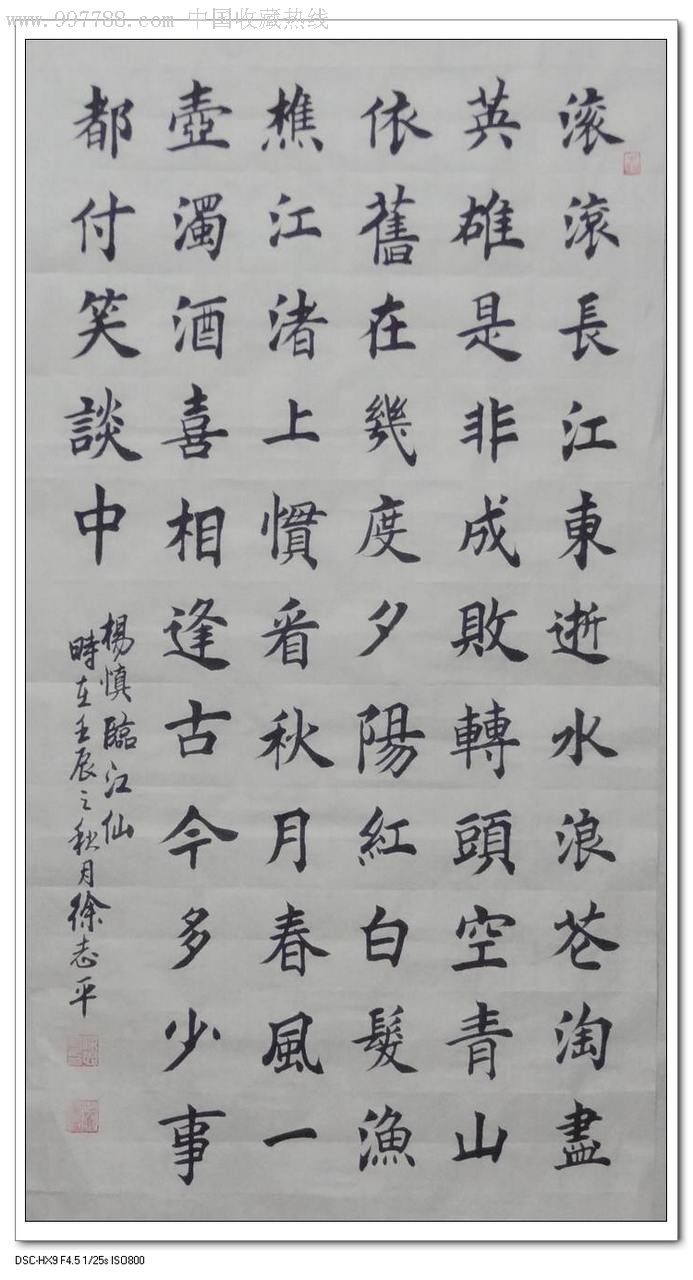 www.997788.com 中国收藏热线
滚滚長江東逝水浪花淘盡
英雄是非成敗轉頭空青山
依舊在幾度夕陽紅白髮漁
樵江渚上慣看秋月春風一
壺濁酒喜相逢古今多少事
都付笑談中
楊慎臨江仙
時在壬辰之秋月徐志平
DSC-HX9 F4.5 1/25s ISO800